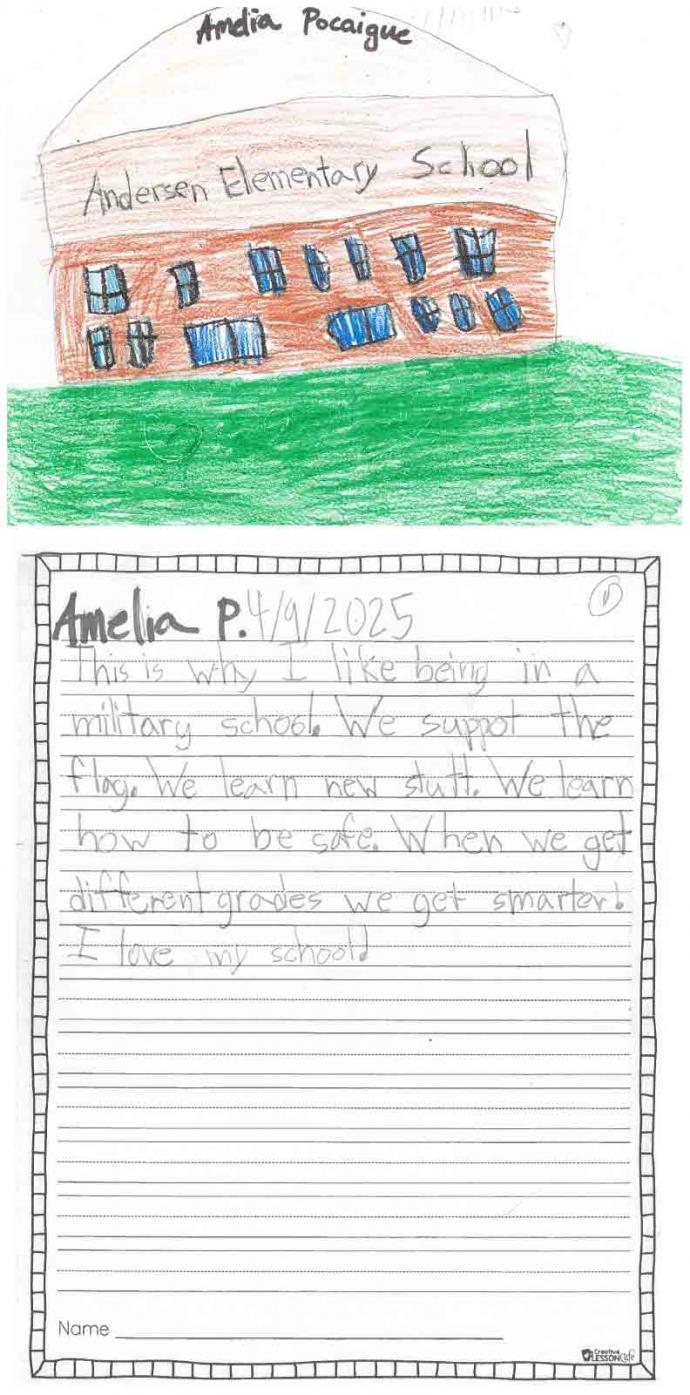 Amelia Pocaigue
Andersen Elementary School
Amelia P. 4/9/2025
This is why I like being in a
military school. We suppot the
flag. We learn new stuff. We learn
how to be safe. When we get
different grades we get smarter!
I love my school!
Name
Creative
LESSON Cafe